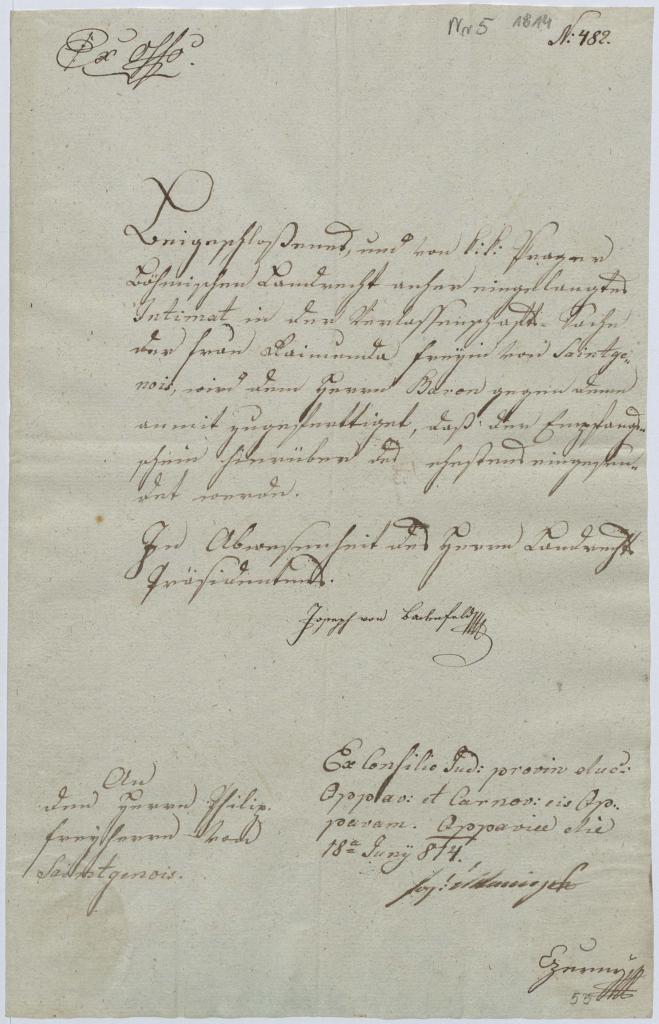 Nr 5 1814
N: 482.
Ex offo.
Beigeschloßenes, und von k: k: Prager
Böhmischen Landrecht anher eingelangtes
Intimat in der Verlassenschafts-Sache
der Frau Raimunda Freyin von Saintge-
nois, wird dem Herrn Baron gegen deme
anmit zugefertiget, daß der Empfang-
schein hierüber des ehestens eingesen-
det werde.
In Abwesenheit des Herrn Landrechts
Präsidentens.
Joseph von
An
den Herrn Philip
Freyherrn von
Saintgenois.
Ex Consilio Jud: provin duc:
Oppav: et Carnov: cis Op-
pavam. Oppaviae die
18a Juny 814.
Czerny
55